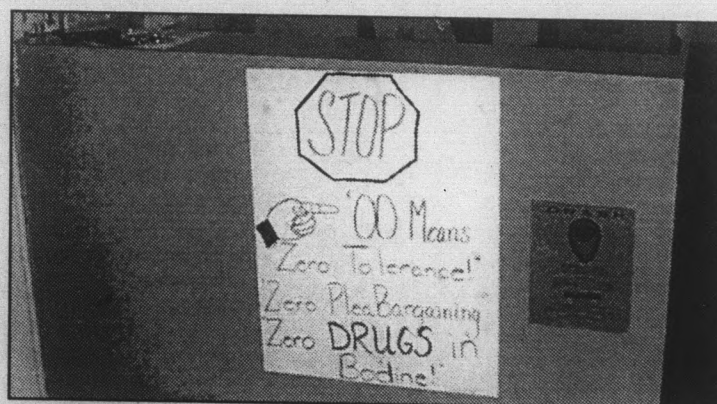 STOP
'00 Means
Zero Tolerance!"
"Zero Plea Bargaining
Zero DRUGS in
Bodine!"